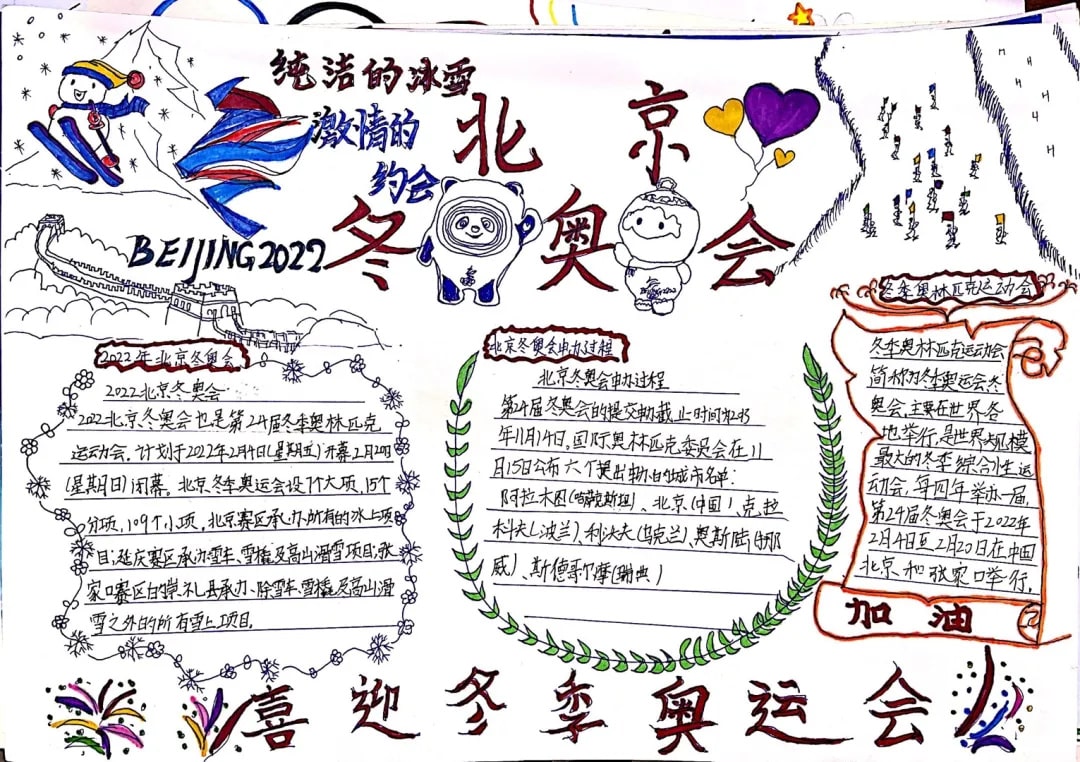 纯洁的冰雪
激情的
约会
北京
冬奥会
BEIJING2022
2022年北京冬奥会
2022北京冬奥会
2022北京冬奥会也是第24届冬季奥林匹克
运动会，计划于2022年2月4日(星期五)开幕2月20日
(星期日)闭幕。北京冬季奥运会设7个大项，15个
分项，109个小项，北京赛区承办所有的冰上项
目；延庆赛区承办雪车、雪橇及高山滑雪项目；张
家口赛区的崇礼县承办、除雪车、雪橇及高山滑
雪之外的所有雪上项目。
北京冬奥会申办过程
北京冬奥会申办过程
第24届冬奥会的提交申截止时间为
年11月14日，国际奥林匹克委员会在11
月15日公布六个提出申办的城市名单：
阿拉木图(哈萨克斯坦)、北京(中国)、克，拉
科夫(波兰)、利沃夫(乌克兰)、奥斯陆(挪
威)、斯德哥尔摩(瑞典)
冬季奥林匹克运动会
冬季奥林匹克运动会
简称为冬季奥运会冬
奥会，主要在世界各
地举行，是世界规模
最大的冬季综合性运
动会，每四年举办一届，
第24届冬奥会于2022年
2月4日至2月20日在中国
北京和张家口举行。
加油
喜迎冬季奥运会